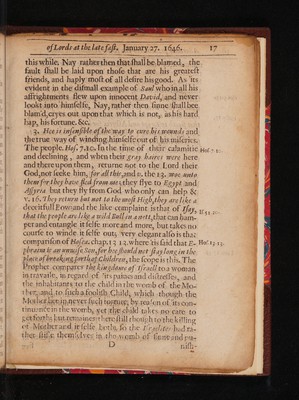 of Lords at the late fast. January 27. 1646. 17
this while. Nay rather then that shall be blamed, the
fault shall be laid upon those that are his greatest
friends, and haply most of all desire his good. As its
evident in the dismall example of Saul who in all his
affrightments flew upon innocent David, and never
lookt into himselfe, Nay, rather then sinne shall bee
blam'd, cryes out upon that which is not, as his hard
hap, his fortune. &c.
3. Hee is insensible of the way to cure his wounds and
the true way of winding himselfe out of his miseries.
The people. Hos. 7.10. In the time of their calamitie Hos. 7.
and declining, and when their gray haires were here
and there upon them, returne not to the Lord their
God, not seeke him, for all this, and v. the 13. woe unto
them for they have fled from me; they flye to Egypt and
Assyria but they fly from God who only can help &
v. 16. They return but not to the most High, they are like a
deceitfull Bow: and the like complaint is that of Esay,
that the people are like a wild Bull in a nett, that can ham-
per and entangle it selfe more and more, but takes no
course to winde it selfe out; very elegant also is that
comparison of Hosea. chap. 13 13. where its said that E- Hos. 13.13.
phraim is an unwise Son, for hee should not stay long in the
place of breaking forth of Children, the scope is this. The
Prophet compares the kingdome of Israell to a woman
in travaile, in regard of its paines and distresses, and
the inhabitants to the child in the womb of the Mo-
ther, and to such a foolish Child, which though the
Mother bee in never such torture, by reason of its con-
tinuence in the womb, yet the child takes no care to
get forth; but remaines there still though to the killing
of Mother and it selfe both, so the
ther themselves in the womb of sinne and pu-
D nish-